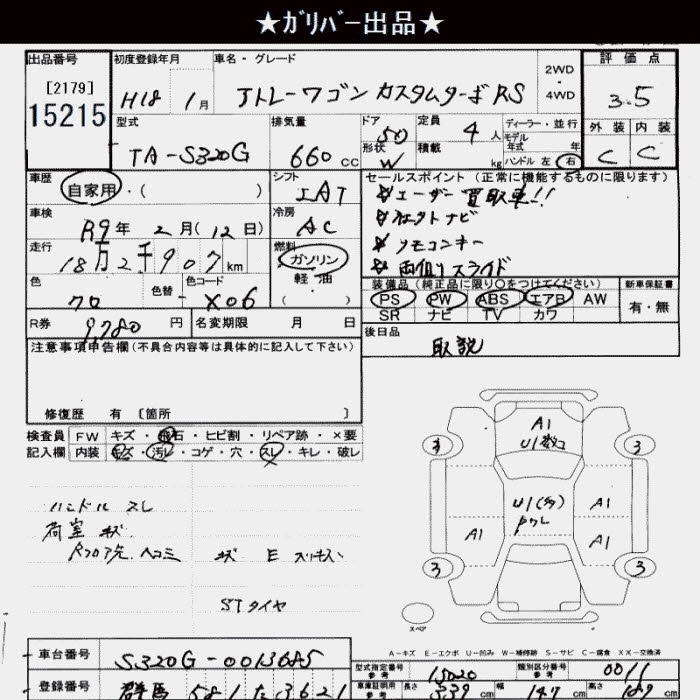 ★ガリバー出品★
出品番号
[2179]
15215
初度登録年月
H18 1月
車名・グレード
アトレーワゴン カスタムターボRS
2WD
4WD
評価点
3.5
型式
TA-S320G
排気量
660 CC
ドア 5D
形状 W
定員 4人
積載 kg
ディーラー・並行
モデル
年式 年
ハンドル 左 右
外装 内装
C C
車歴
自家用・( )
シフト
IAT
セールスポイント (正常に機能するものに限ります)
ユーザー買取車!!
ネクトナビ
リモコンキー
両側スライド
車検
R9年 2月(12日)
冷房
AC
走行
18万2千907km
燃料
ガソリン
軽・油
( )
色
クロ
色替
色コード
X06
装備品(純正品に限り○をつけてください)
PS PW ABS エアB AW
SR ナビ TV カワ
新車保証書
有・無
R券 9,780 円
名変期限 月 日
後日品
取説
注意事項申告欄(不具合内容等は具体的に記入して下さい)
修復歴 有 [箇所 ]
検査員
記入欄
FW キズ・飛石・ヒビ割・リペア跡・×要
内装 キズ・汚レ・コゲ・穴・スレ・キレ・破レ
ハンドル スレ
荷室 キズ
STタイヤ
A1
U1
3
3
U1(多)
A1
A1
A1
3
3
スペア
A-キズ E-エクボ U-凹み W-補修跡 S-サビ C-腐食 XX-交換済
車台番号
S320G-0013685
登録番号
群馬 581 た 3621
型式指定番号
参考
15020
類別区分番号
参考
0011
車庫証明用
参考
長さ 339 cm 幅 147 cm 高さ 189 cm